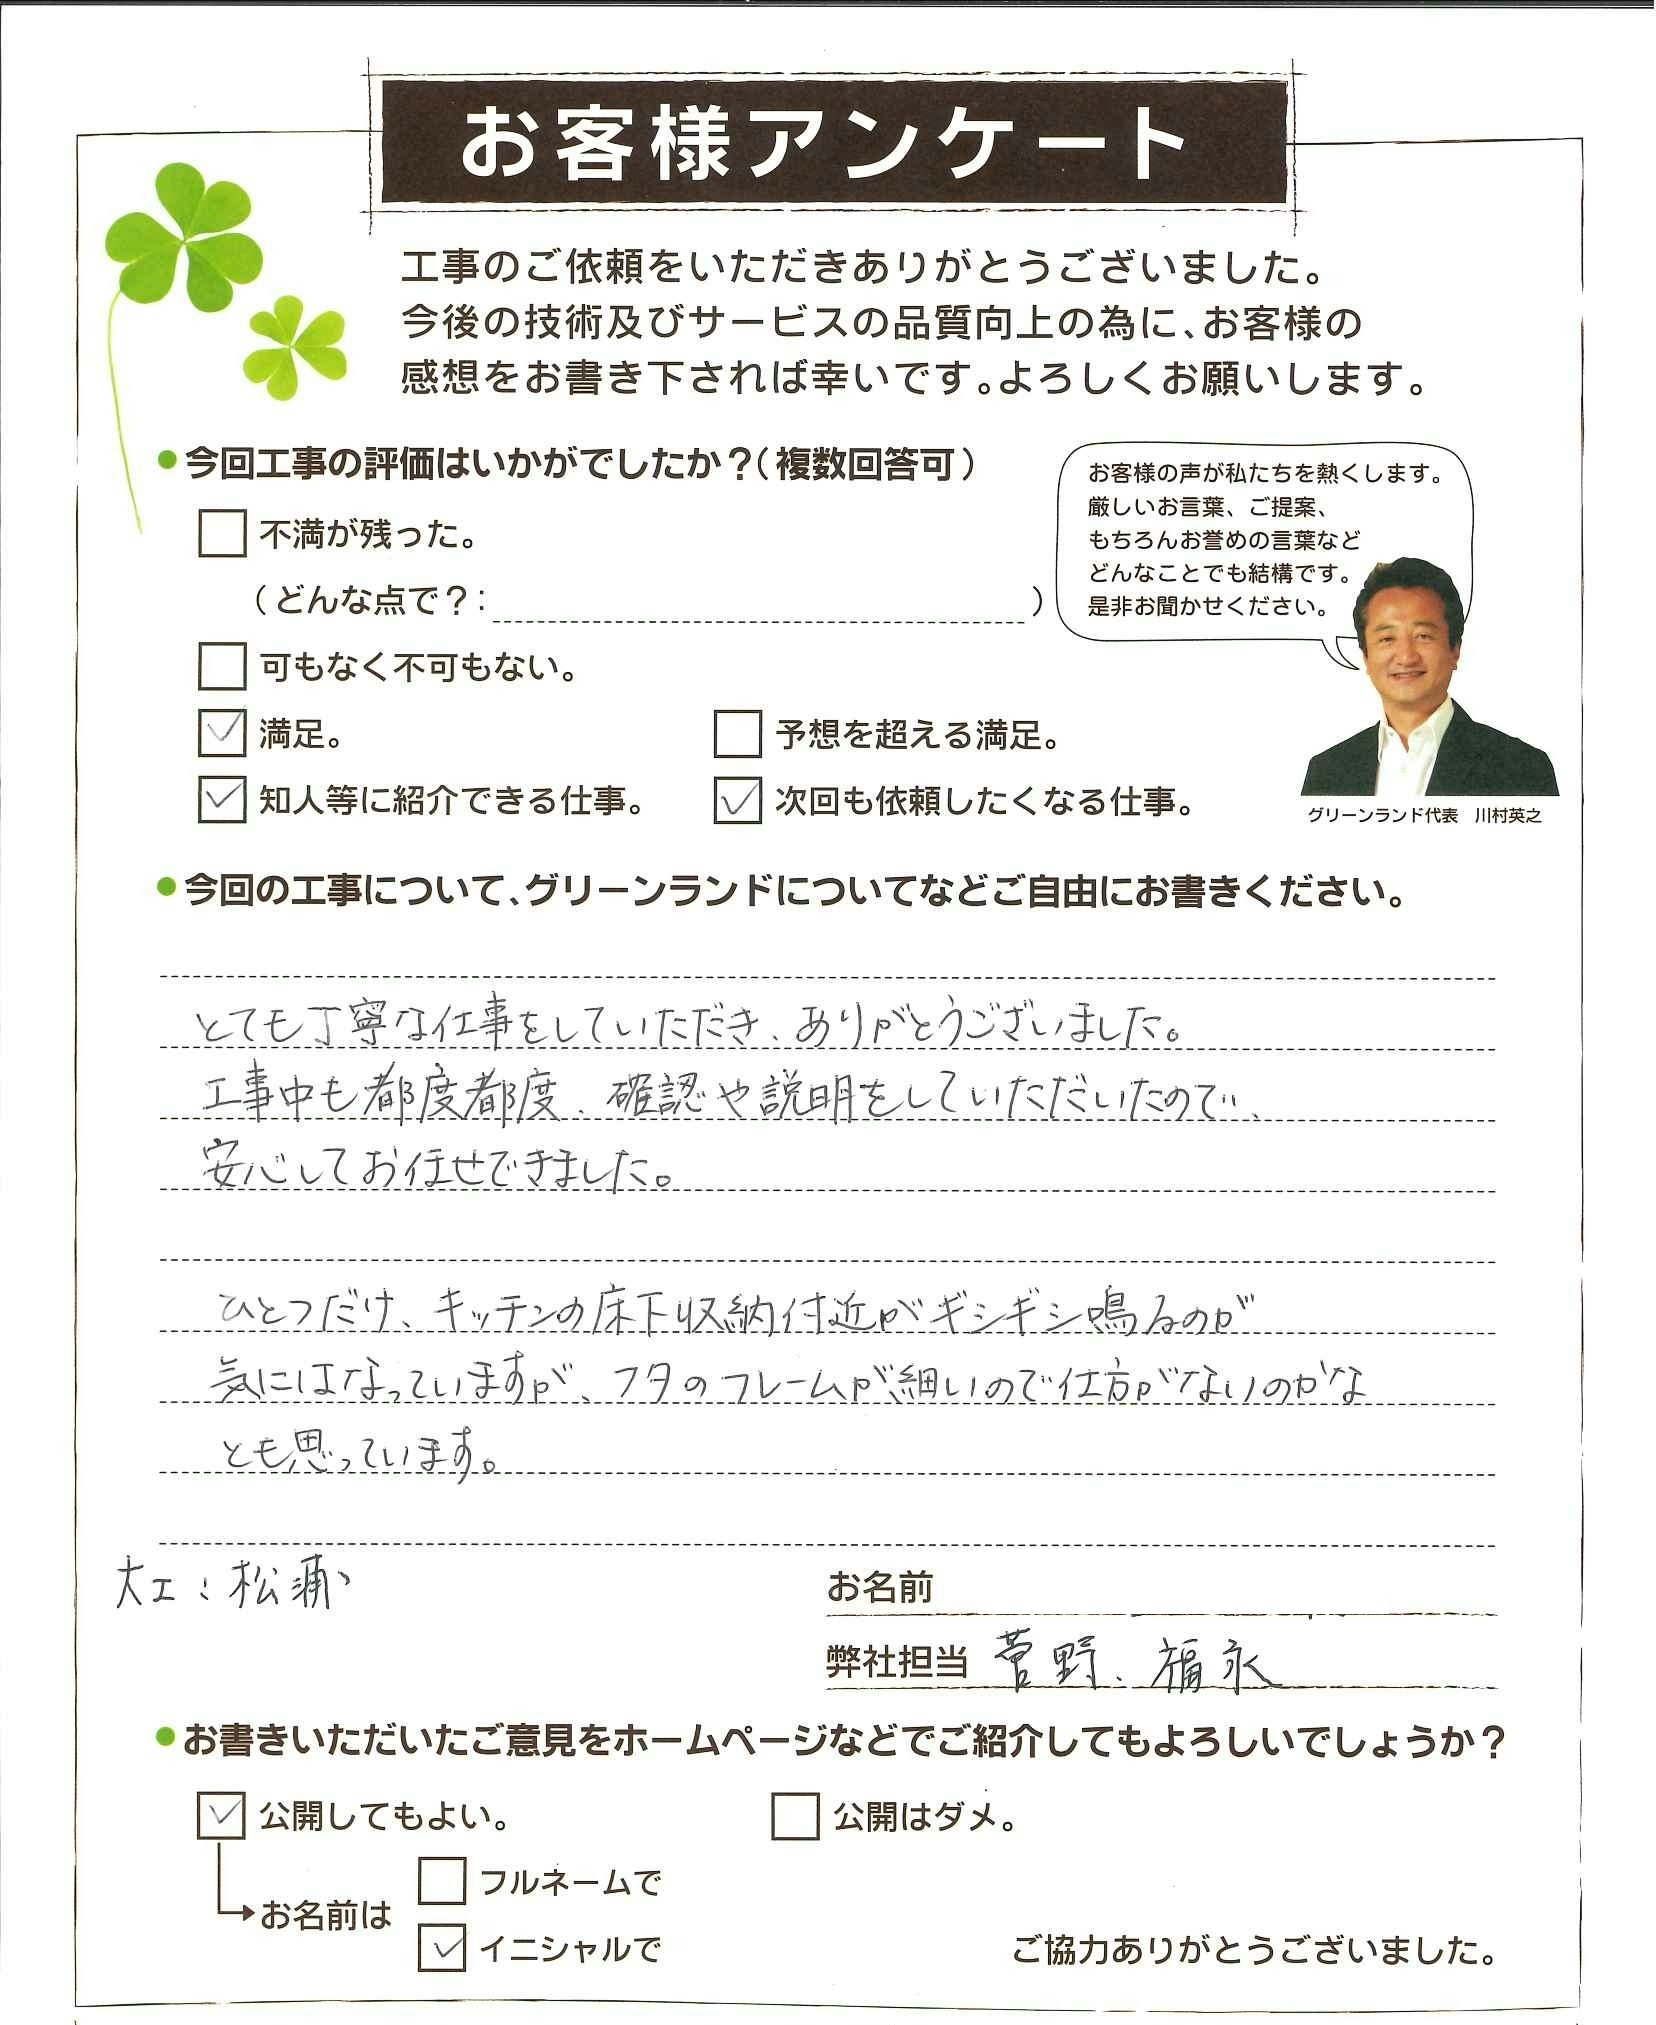 お客様アンケート
工事のご依頼をいただきありがとうございました。
今後の技術及びサービスの品質向上の為に、お客様の
感想をお書き下されば幸いです。よろしくお願いします。
●今回工事の評価はいかがでしたか？（複数回答可）
不満が残った。
（どんな点で？：　）
可もなく不可もない。
満足。
予想を超える満足。
知人等に紹介できる仕事。
次回も依頼したくなる仕事。
お客様の声が私たちを熱くします。
厳しいお言葉、ご提案、
もちろんお誉めの言葉など
どんなことでも結構です。
是非お聞かせください。
グリーンランド代表　川村英之
●今回の工事について、グリーンランドについてなどご自由にお書きください。
とても丁寧な仕事をしていただき、ありがとうございました。
工事中も都度都度、確認や説明をしていただいたので、
安心してお任せできました。
ひとつだけ、キッチンの床下収納付近がギシギシ鳴るのが
気にはなっていますが、フタのフレームが細いので仕方がないのかな
とも思っています。
大工：松浦
お名前
弊社担当 菅野、福永
●お書きいただいたご意見をホームページなどでご紹介してもよろしいでしょうか？
公開してもよい。
公開はダメ。
お名前は
フルネームで
イニシャルで
ご協力ありがとうございました。